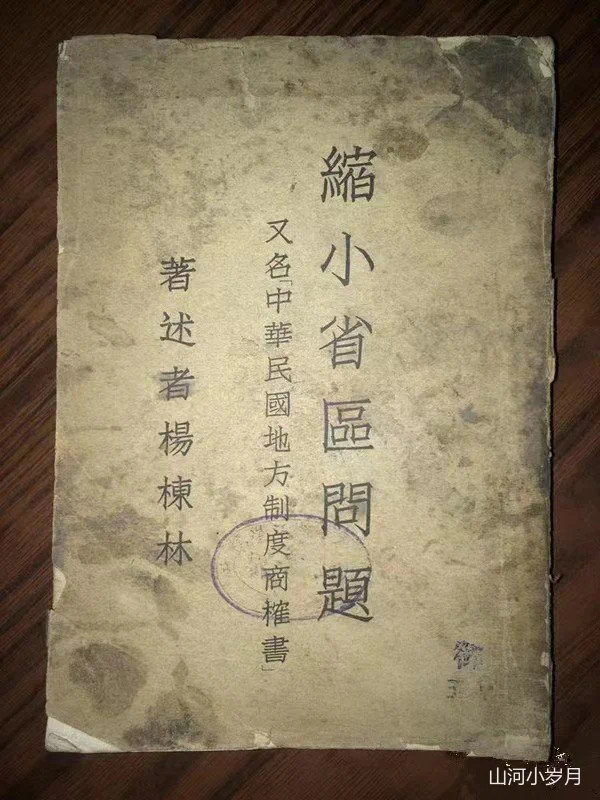 縮小省區問題
又名「中華民國地方制度商榷書」
著述者楊棟林
山河小岁月